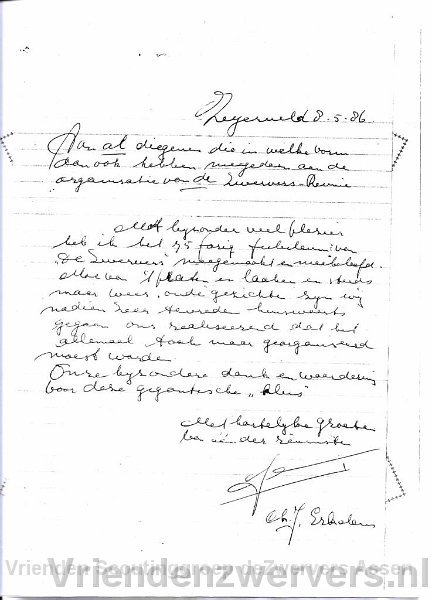 Zegerveld 8-5-86.
Aan al diegenen die in welke vorm
dan ook hebben meegedaan aan de
organisatie van de Zwervers-Reunie
Met bijzonder veel plezier
heb ik het 75 jarig jubileum van
"De Zwervers" meegemaakt en meebeleefd.
Moe van 't praten en lachen en steeds
maar weer oude gezichte zijn wij
nadien zeer tevreden huiswaarts
gegaan ons realiserend dat het
allemaal toch maar georganiseerd
moest worden
Onze bijzondere dank en waardering
voor deze gigantische "klus"
Met hartelijke groeten
van één der reünisten
Ch. J.
Vrienden Scoutinggroep deZwervers Assen
Vriendenzwervers.nl